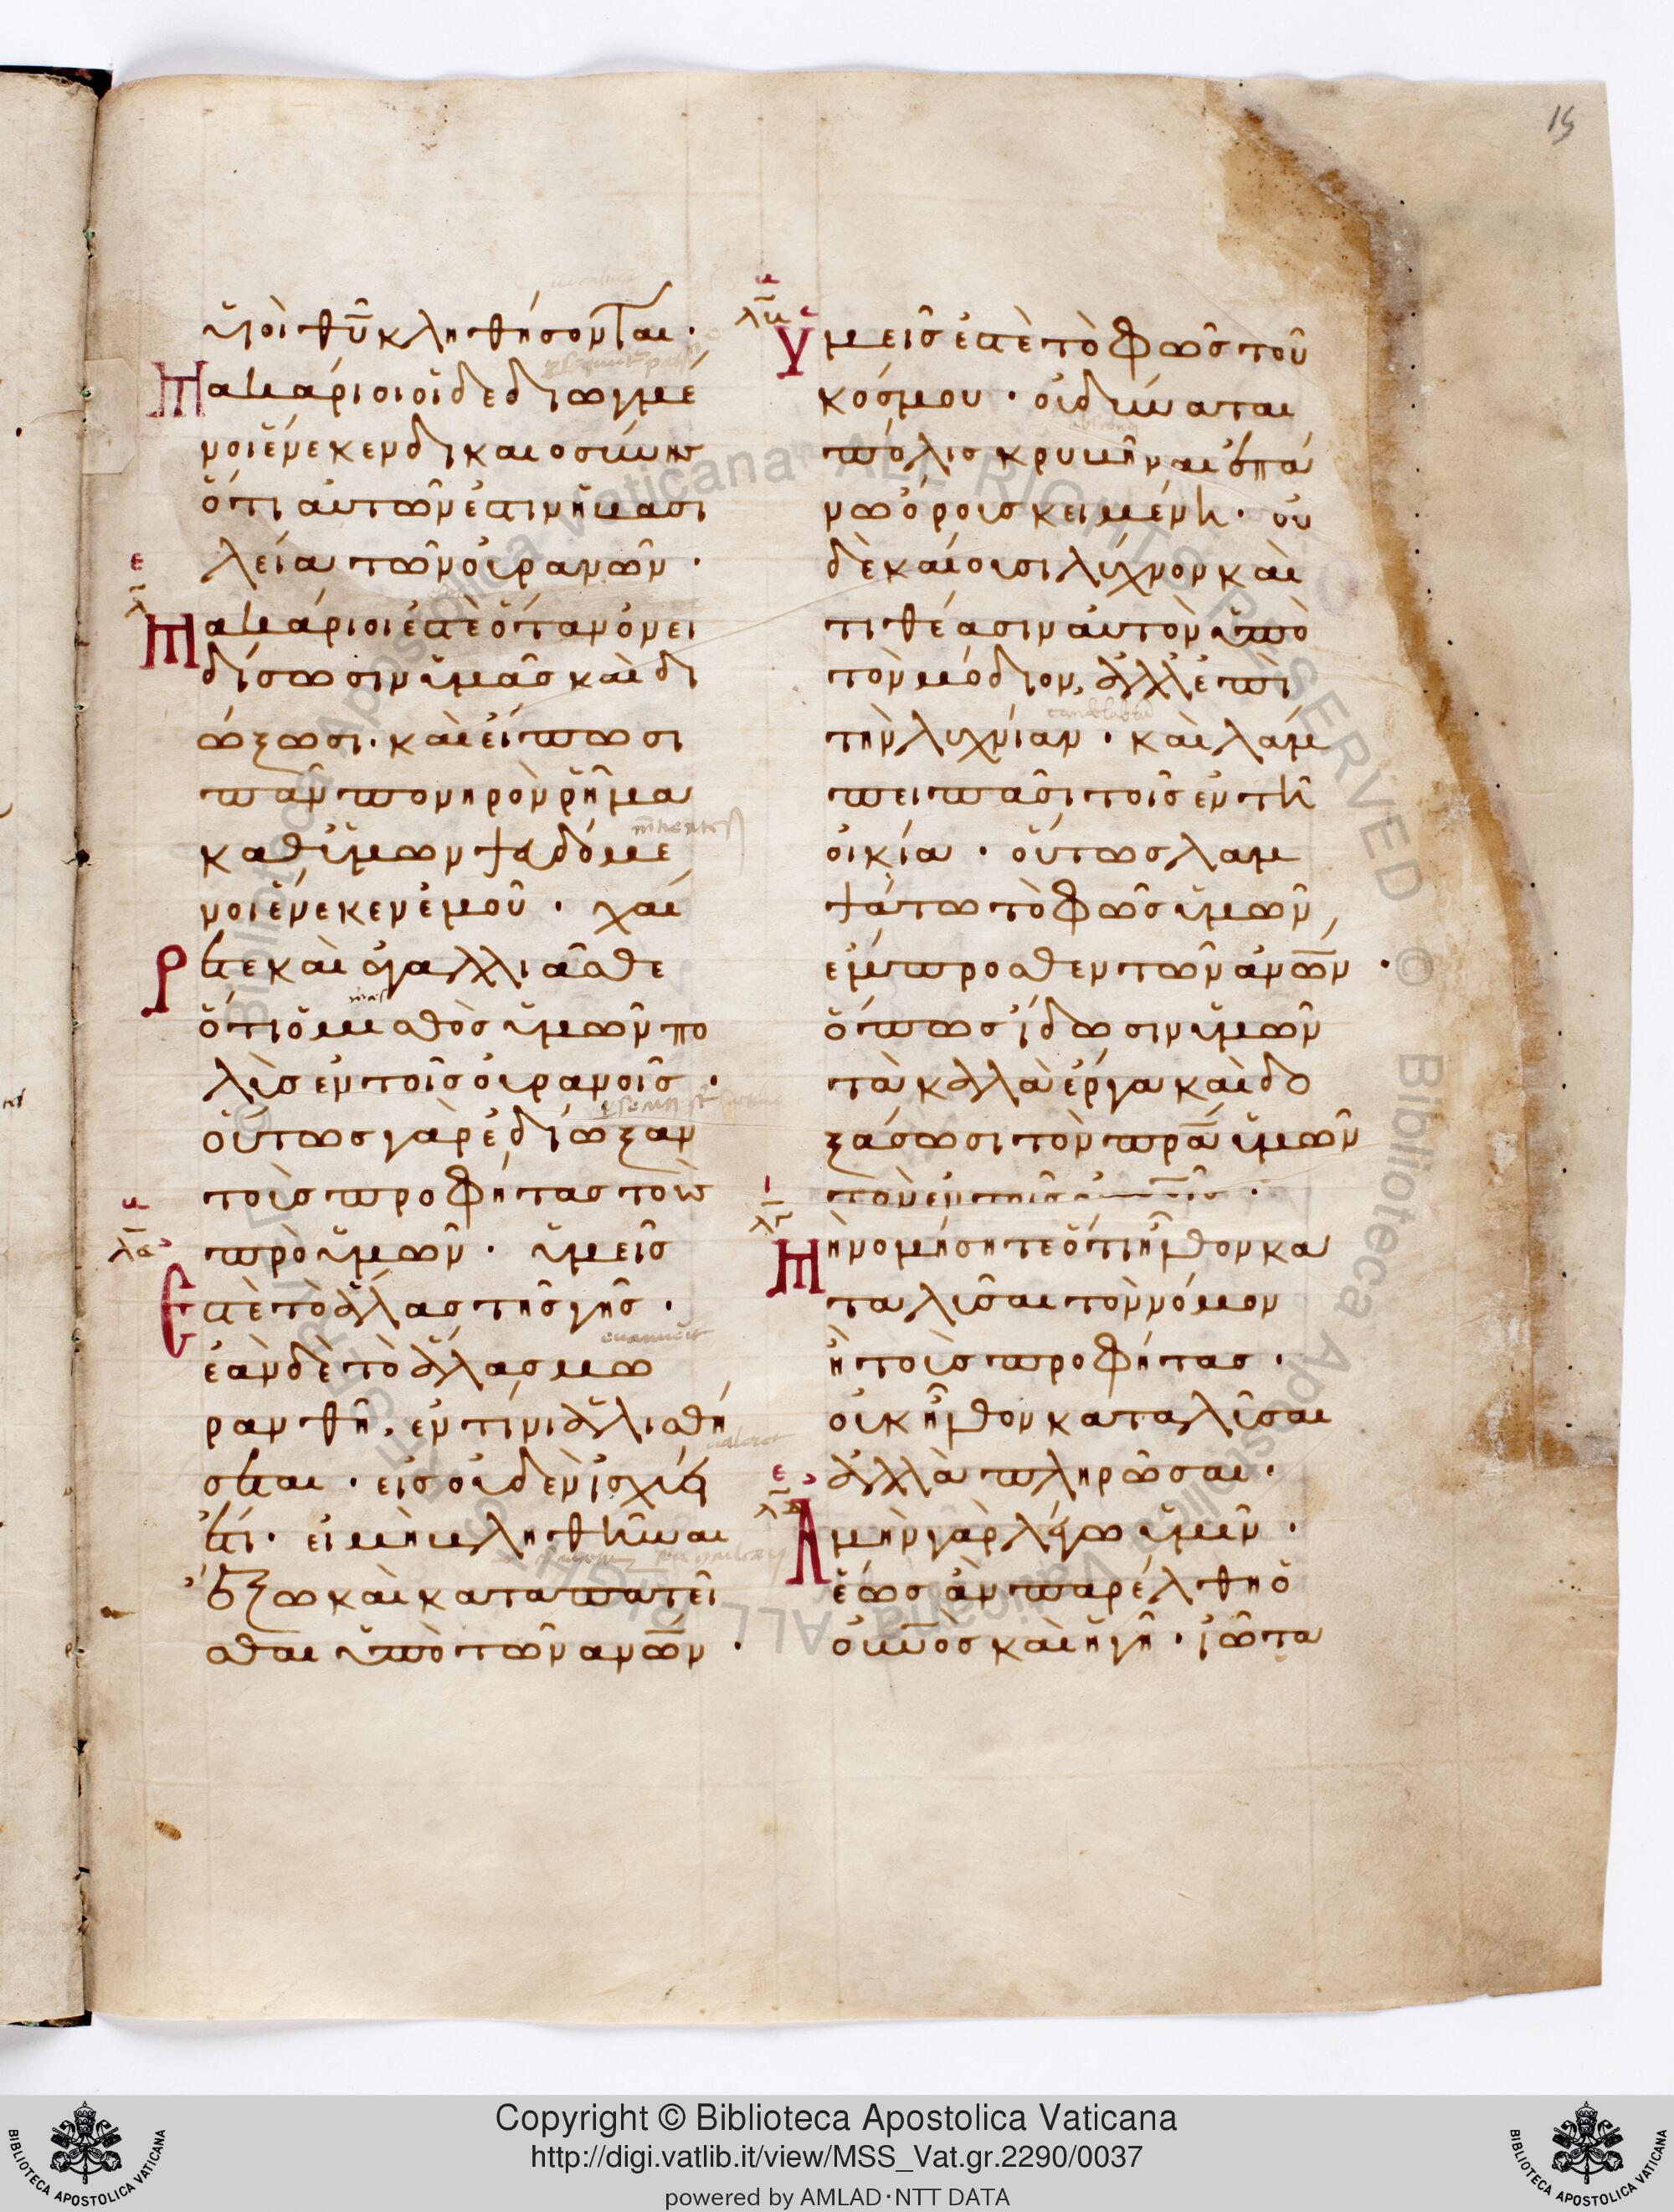 15
υἱοὶ θ̅υ̅ κληθήσονται·
Μακάριοι οἱ δεδιωγμέ
νοι ἕνεκεν δικαιοσύνης
ὅτι αὐτῶν ἐστιν ἡ βασι
λεία τῶν οὐρανῶν·
Μακάριοί ἐστε ὅταν ὀνει
δίσωσιν ὑμᾶς καὶ δι
ώξωσι· καὶ εἴπωσι
πᾶν πονηρὸν ῥῆμα
καθ' ὑμῶν ψευδόμε
νοι ἕνεκεν ἐμοῦ· χαί
Ρετε καὶ ἀγαλλιᾶσθε
ὅτι ὁ μισθὸς ὑμῶν πο
λὺς ἐν τοῖς οὐρανοῖς·
οὕτως γὰρ ἐδίωξαν
τοὺς προφήτας τοὺς
πρὸ ὑμῶν· ὑμεῖς
Εστε τὸ ἅλας τῆς γῆς·
ἐὰν δὲ τὸ ἅλας μω
ρανθῆ, ἐν τίνι ἁλισθή
σεται· εἰς οὐδὲν ἰσχύει
ἔτι· εἰ μὴ βληθῆναι
ἔξω καὶ καταπατεῖ
σθαι ὑπὸ τῶν α̅ν̅ω̅ν̅·
Υμεῖς ἐστε τὸ φῶς τοῦ
κόσμου· οὐ δύναται
πόλις κρυβῆναι ἐπά
νω ὄρους κειμένη· οὐ
δὲ καίουσι λύχνον καὶ
τιθέασιν αὐτὸν ὑπὸ
τὸν μόδιον, ἀλλ' ἐπὶ
τὴν λυχνίαν· καὶ λάμ
πει πᾶσι τοῖς ἐν τῆ
οἰκία· οὕτως λαμ
ψάτω τὸ φῶς ὑμῶν
ἔμπροσθεν τῶν α̅ν̅ω̅ν̅·
ὅπως ἴδωσιν ὑμῶν
τὰ καλὰ ἔργα καὶ δο
ξάσωσι τὸν π̅ρ̅α̅ ὑμῶν
τὸν ἐν τοῖς
Μὴ νομήσητε ὅτι ἦλθον κα
ταλῦσαι τὸν νόμον
ἢ τοὺς προφήτας·
οὐκ ἦλθον καταλῦσαι
ἀλλὰ πληρῶσαι·
Αμὴν γὰρ λέγω ὑμῖν·
ἕως ἂν παρέλθη ὁ
ο̅υ̅ν̅ο̅ς̅ καὶ ἡ γῆ· ἰῶτα
Copyright © Biblioteca Apostolica Vaticana
http://digi.vatlib.it/view/MSS_Vat.gr.2290/0037
powered by AMLAD·NTT DATA
BIBLIOTECA APOSTOLICA VATICANA
BIBLIOTECA APOSTOLICA VATICANA